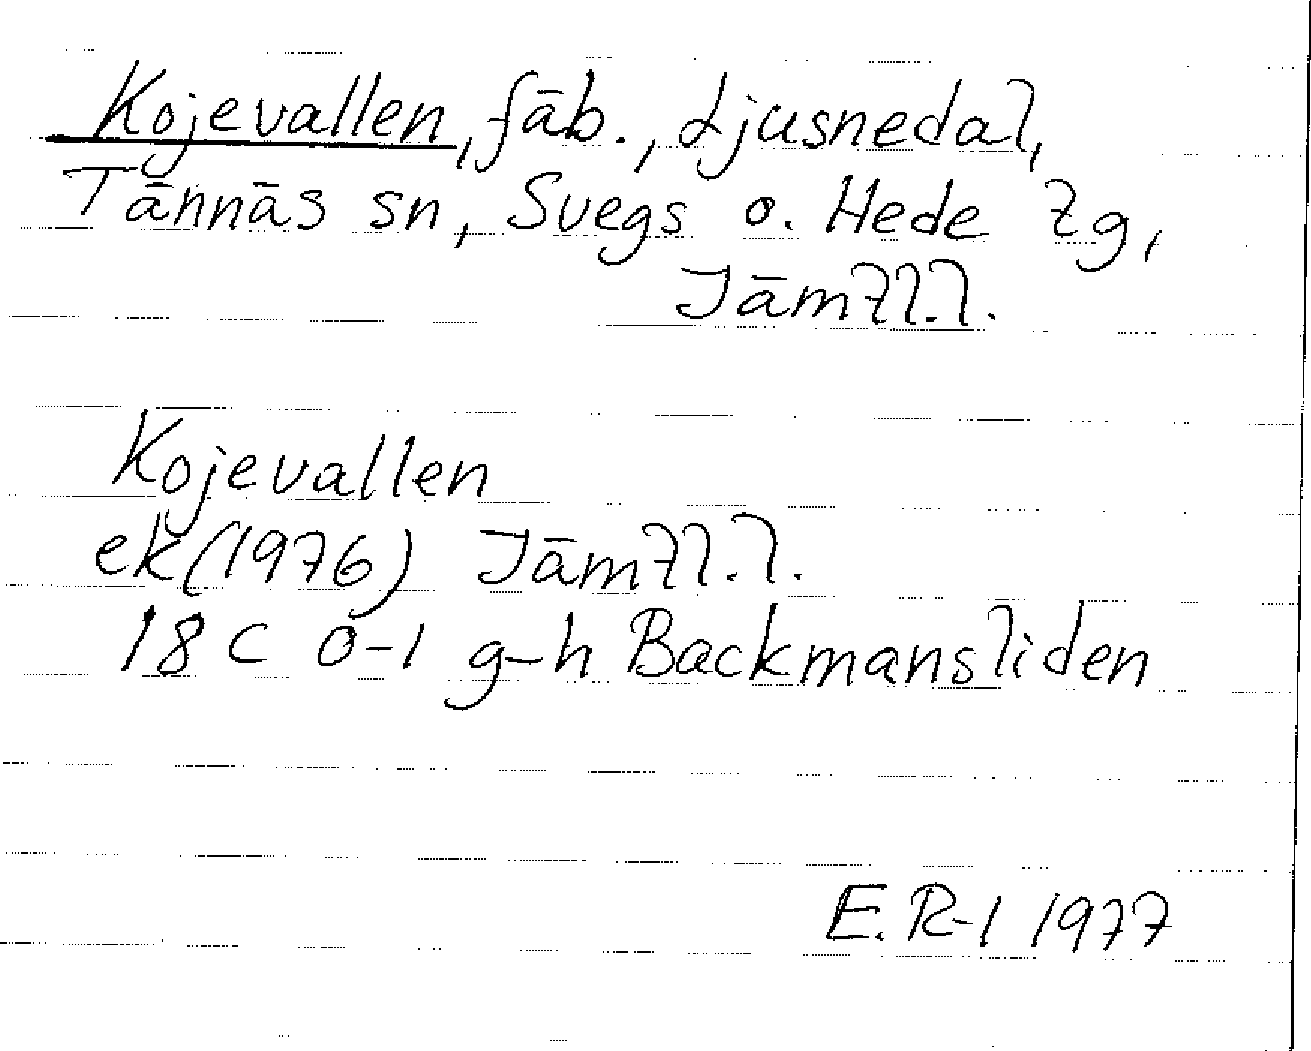 Kojevallen, fäb., Ljusnedal,
Tännäs sn, Svegs o. Hede tg,
Jämtl.l.
Kojevallen
ek(1976) Jämtl.l.
18 C 0-1 g-h Backmansliden
E.R-l 1977